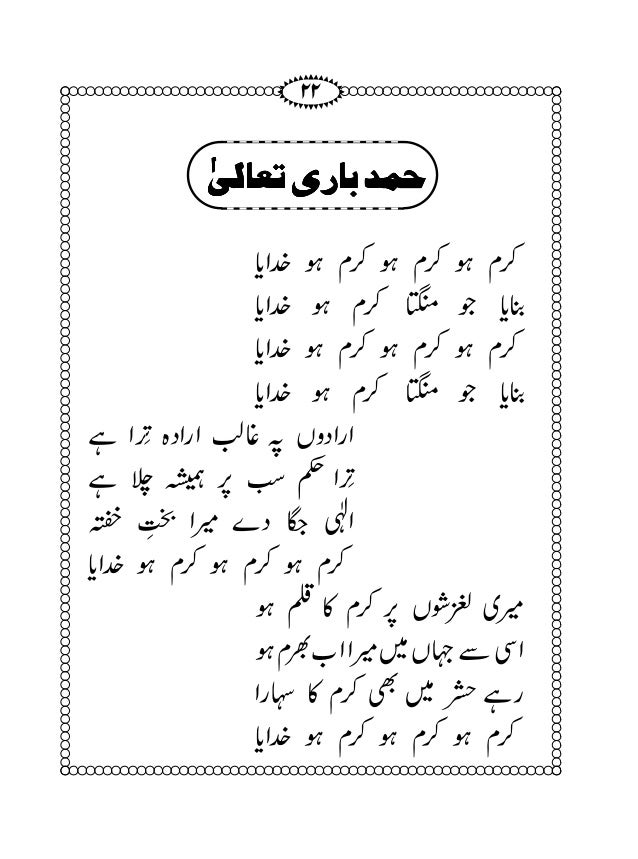 ۲۲
حمد باری تعالیٰ
کرم ہو کرم ہو کرم ہو خدایا
بنایا جو منگتا کرم ہو خدایا
کرم ہو کرم ہو کرم ہو خدایا
بنایا جو منگتا کرم ہو خدایا
ارادوں پہ غالب ارادہ تِرا ہے
تِرا حکم سب پر ہمیشہ چلا ہے
الٰہی جگا دے میرا بختِ خفتہ
کرم ہو کرم ہو کرم ہو خدایا
میری لغزشوں پر کرم کا قلم ہو
اسی سے جہاں میں میرا اب بھرم ہو
رہے حشر میں بھی کرم کا سہارا
کرم ہو کرم ہو کرم ہو خدایا